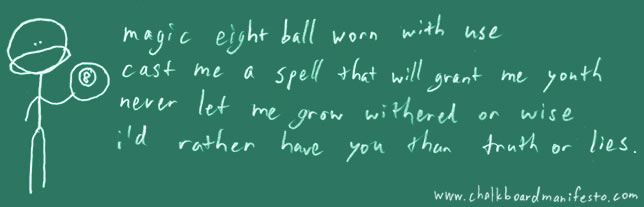 magic eight ball worn with use
cast me a spell that will grant me youth
8
never let me grow withered or wise
i'd rather have you than truth or lies.
www.chalkboardmanifesto.com